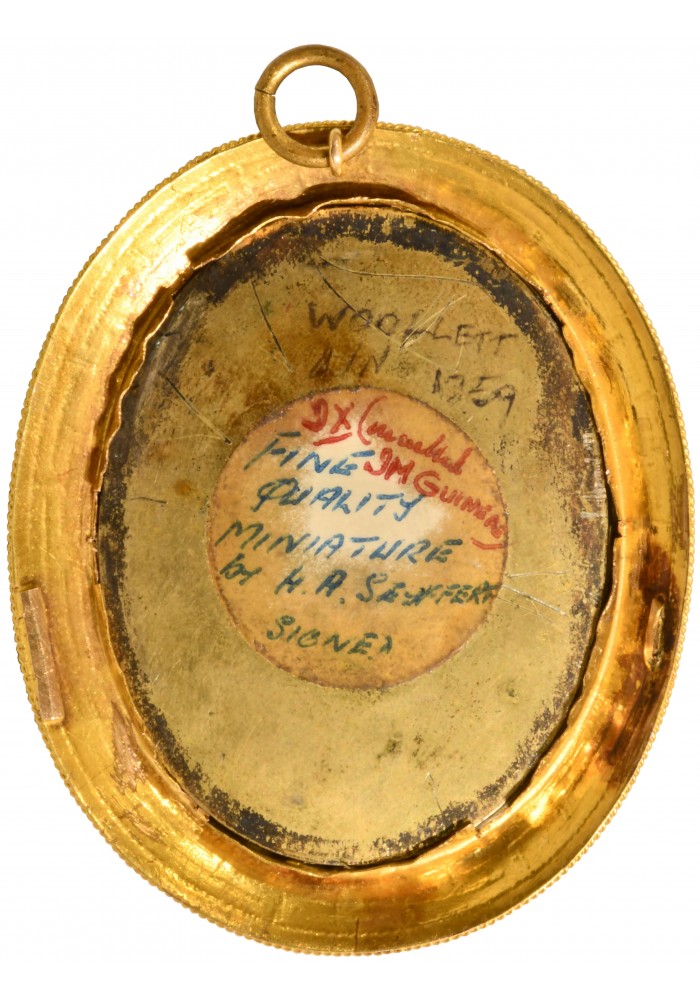 WOOLLETT
AIN 1259
DX (marked
FINE 3M GUINEAS)
QUALITY
MINIATURE
by H.A. SEYFFERT
SIGNED